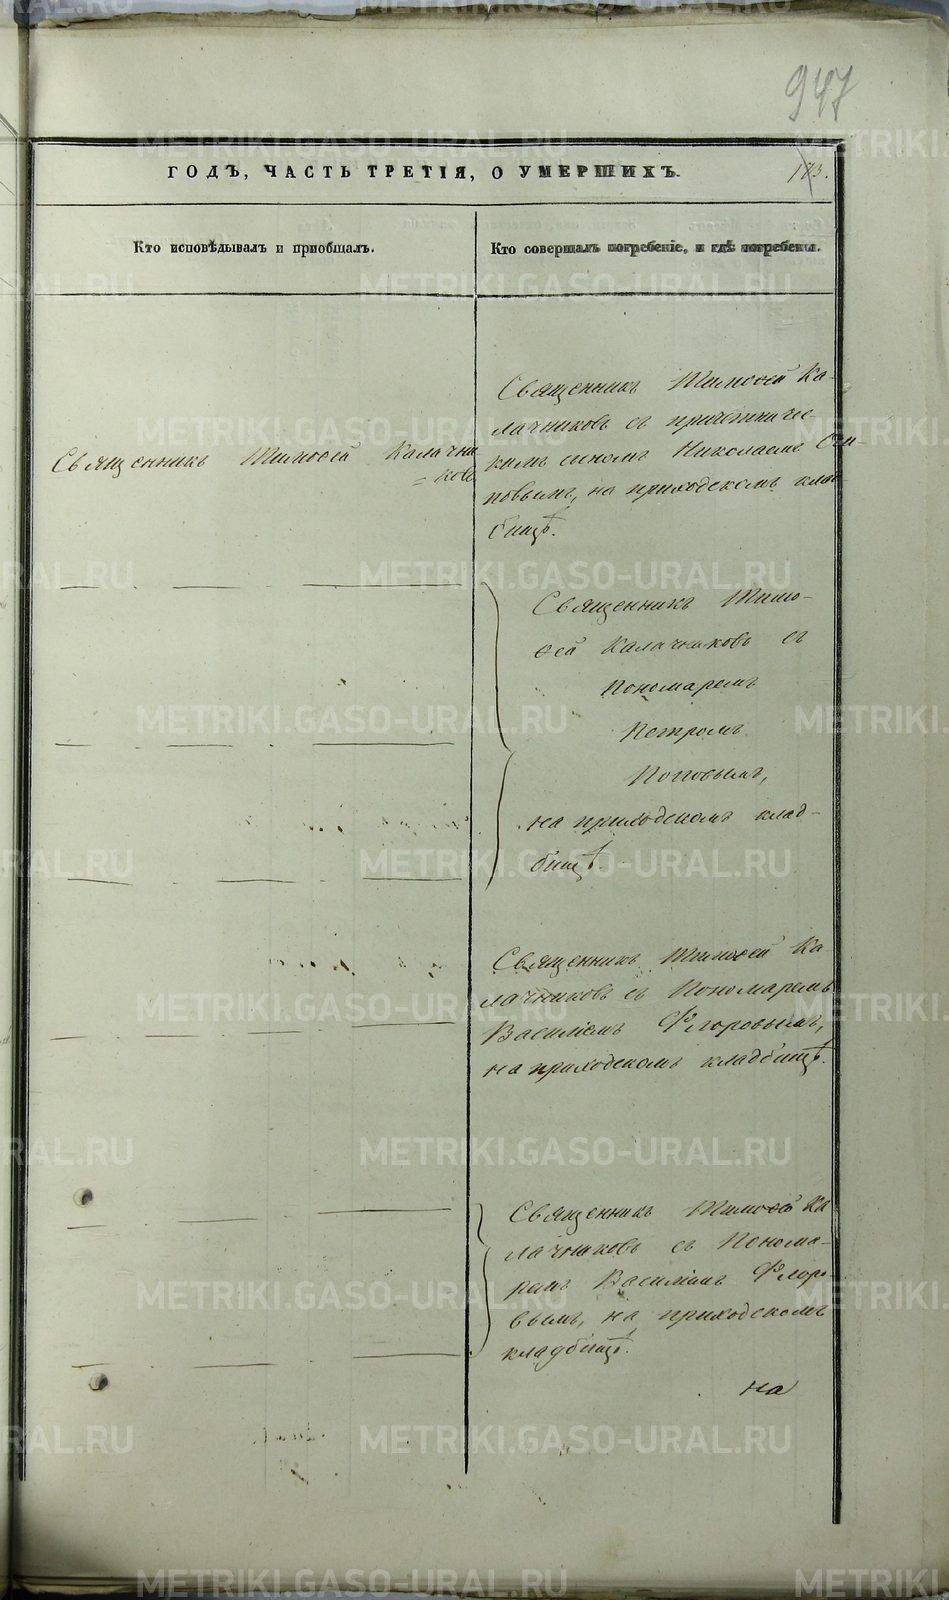 947
ГОДЪ, ЧАСТЬ ТРЕТІЯ, О УМЕРШИХЪ.
173.
Кто исповѣдывалъ и приобщалъ.
Кто совершалъ погребеніе, и гдѣ погребены.
Священникъ Тимоѳей Калачни
=ковъ
Священникъ Тимоѳей Ка-
лачниковъ съ причетниче-
скимъ сыномъ Николаемъ
повымъ, на приходскомъ клад
бищѣ.
Священникъ Тимо-
ѳей Калачниковъ съ
Пономаремъ
Петромъ
Поповымъ,
на приходскомъ клад-
бищѣ.
Священникъ Тимоѳей Ка
лачниковъ съ Пономаремъ
Василіемъ Флоровымъ,
на приходскомъ кладбищѣ.
Священникъ Тимоѳей Ка
лачниковъ съ Понома-
ремъ Василіемъ Флоро-
вымъ, на приходскомъ
кладбищѣ.
на
METRIKI.GASO-URAL.RU